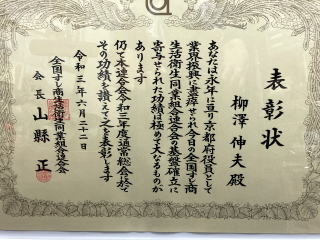 表彰状
柳澤伸夫殿
あなたは永年に亘り京都府役員として
業界振興に盡瘁せられ今日の全国すし商
生活衛生同業組合連合会の基盤確立に
寄与せられた功績は極めて大なるものが
あります
仍て本連合会令和三年度通常総会に於て
その功績を讃えて之を表彰します
令和三年六月二十二日
全国すし商生活衛生同業組合連合会
会長 山縣正